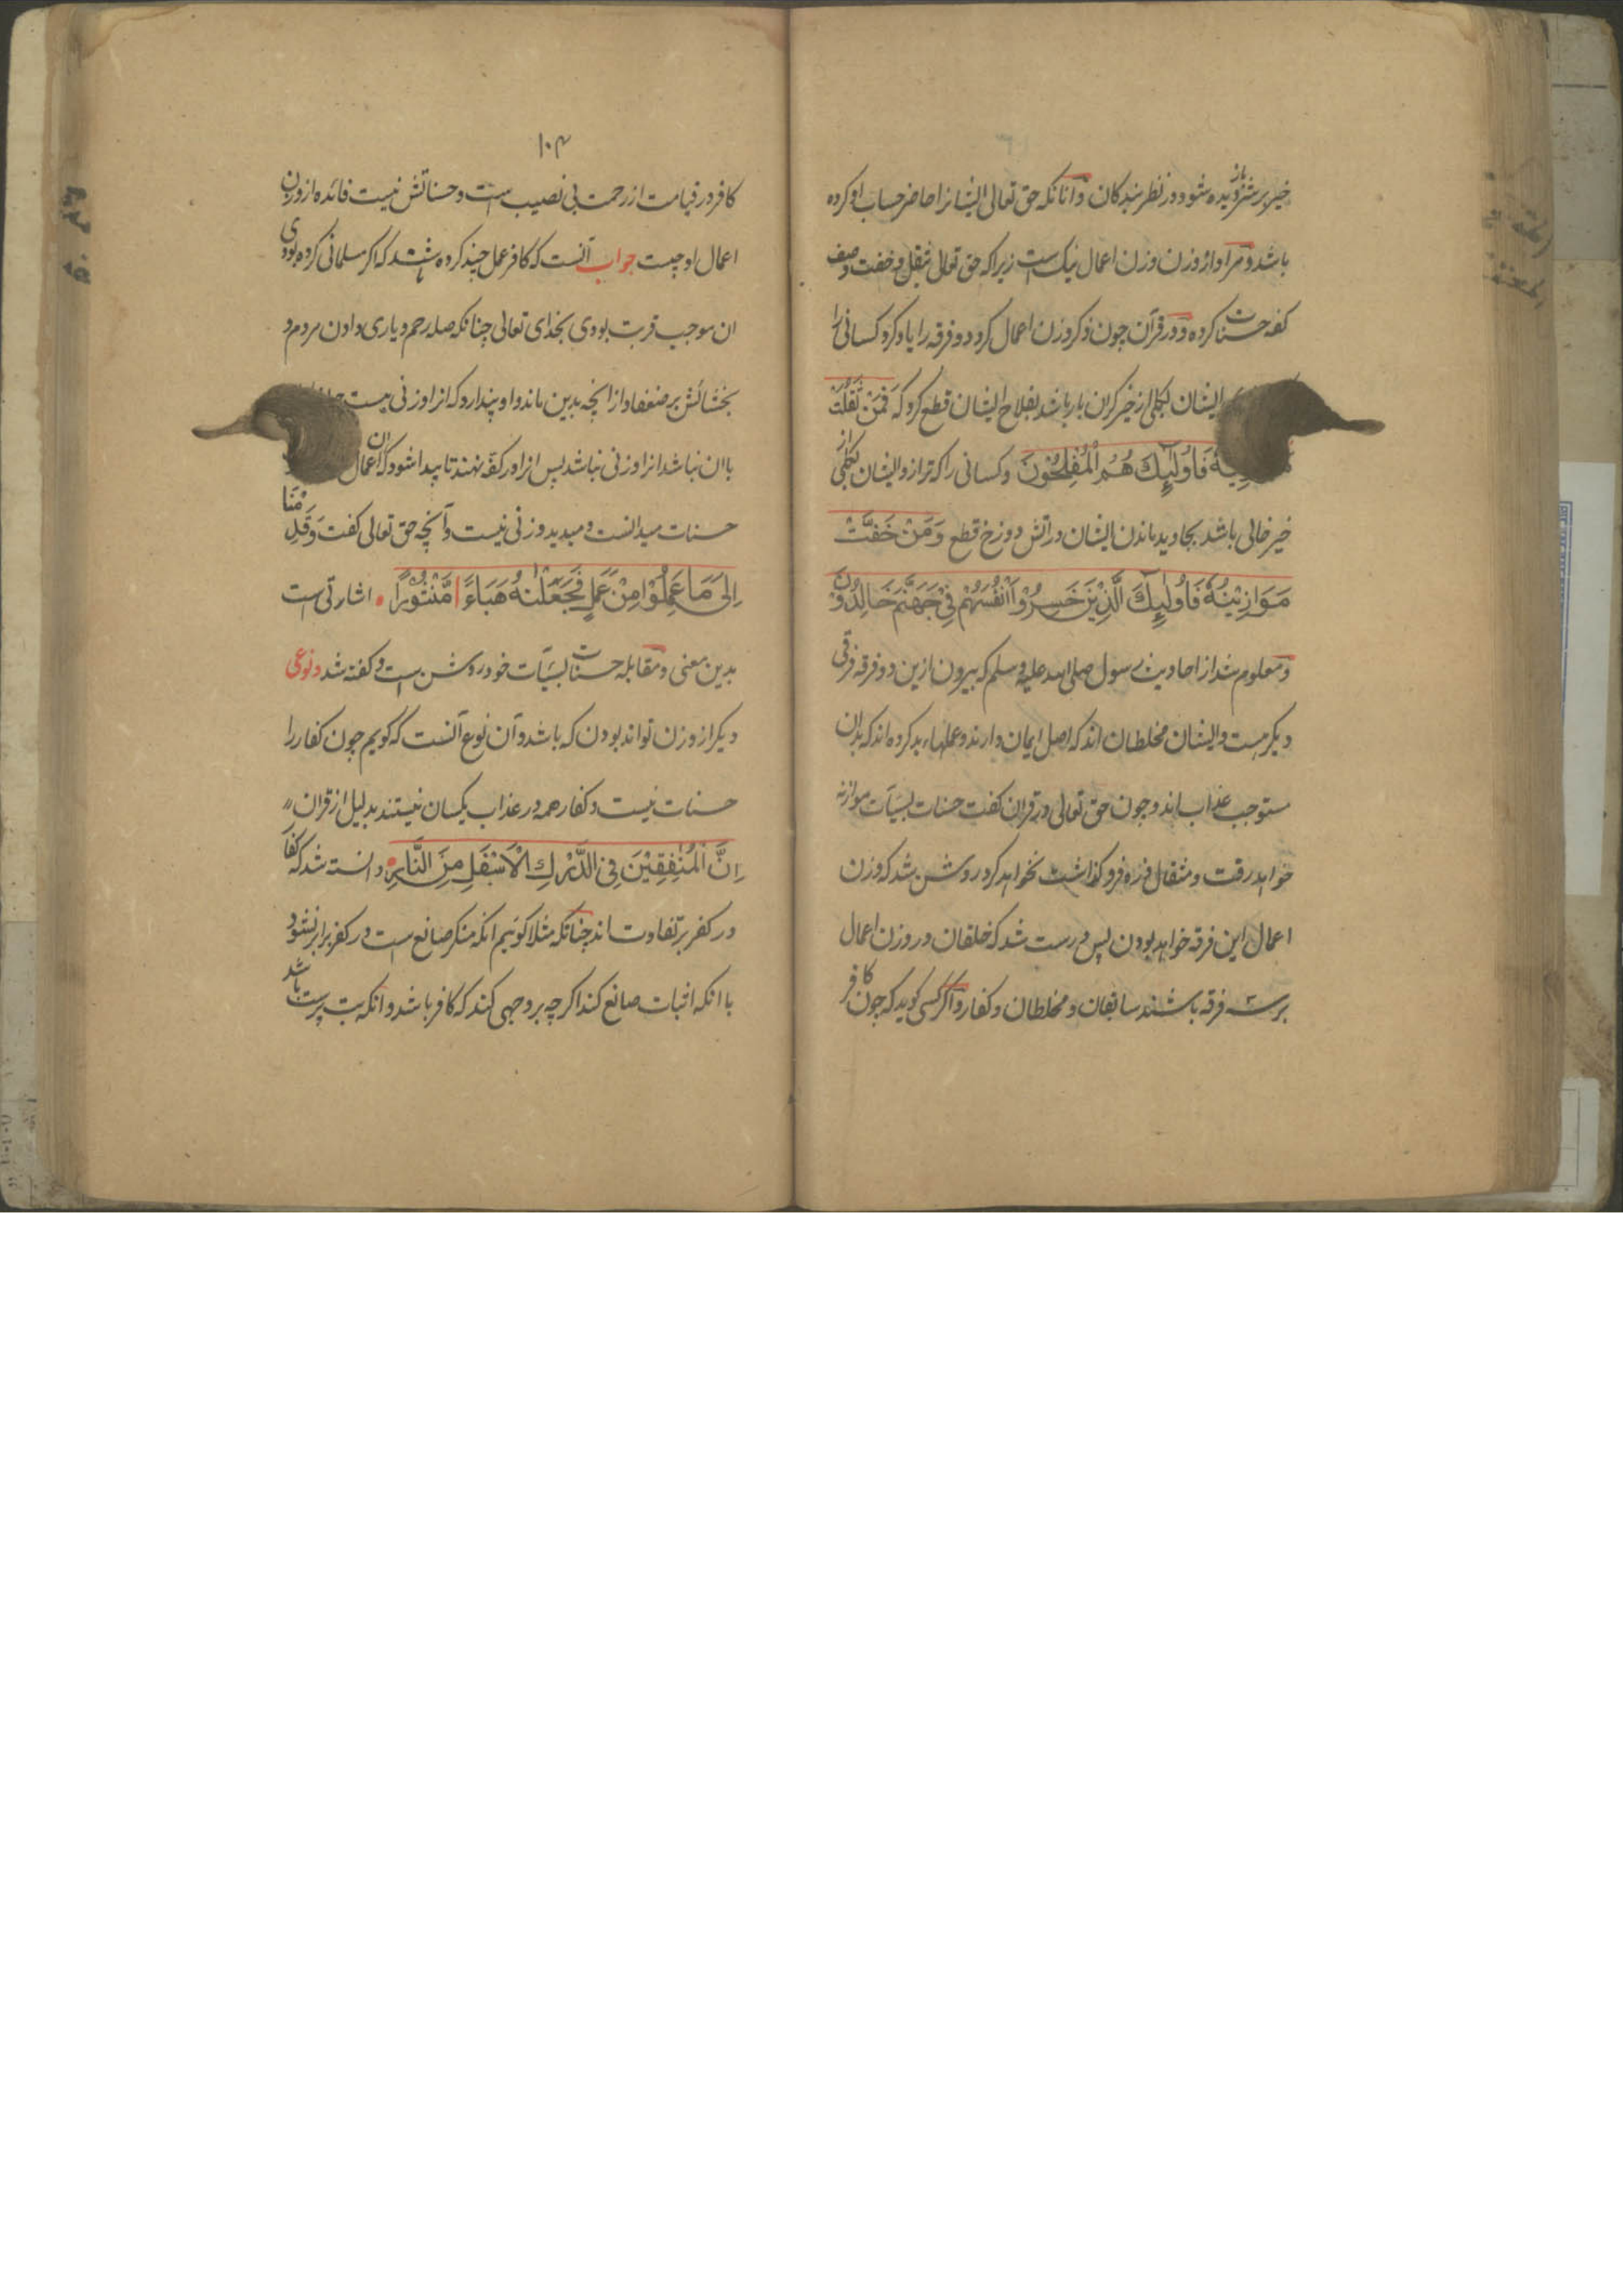 خیر بر شر دیده شود در نظر بندکان و آنانکه حق تعالی ایشانرا حاضر حساب او کرده
باشد و مراد از وزن وزن اعمال نیک است زیرا که حق تعالی ثقل و خفت وصف
کفه حسنات کرده و در قرآن چون ذکر وزن اعمال کرد دو فرقه را یاد کرد کسانی را
ایشان بکلی از خیر کران بار باشد بفلاح ایشان قطع کرد که فَمَنْ ثَقُلَتْ
فَاُولٰٓئِكَ هُمُ الْمُفْلِحُوْنَ و کسانی را که ترازو ایشان بکلی از
خیر خالی باشد بجاوید ماندن ایشان در آتش دوزخ قطع وَمَنْ خَفَّتْ
مَوَازِيْنُهٗ فَاُولٰٓئِكَ الَّذِيْنَ خَسِرُوْا اَنْفُسَهُمْ فِيْ جَهَنَّمَ خَالِدُوْنَ
و معلوم شد از احادیث رسول صلی الله علیه وسلم که بیرون ازین دو فرقه فرقی
دیکر هست و ایشان مخلطان اند که اصل ایمان دارند و عملهاء بد کرده اند که بدان
مستوجب عذاب اند و چون حق تعالی در قران کفت حسنات بسیآت موازنه
خواهد رفت و مثقال ذره فرو کذاشت نخواهد کرد روشن شد که وزن
اعمال این فرقه خواهد بودن پس درست شد که خلقان در وزن اعمال
بر سه فرقه باشند سابقان و مخلطان و کفار و اکر کسی کوید که چون کافر
۱۰۴
کافر در قیامت از رحمت بی نصیب است و حسناتش نیست فائده از وزن
اعمال او چیست جواب آنست که کافر عمل چند کرده باشد که اکر مسلمانی کرده بودی
ان موجب قربت بودی بخدای تعالی چنانکه صله رحم و یاری دادن مردم و
بخشائش بر ضعفا و از انچه بدین ماند و او پندارد که انرا وزنی هست
با ان نباشد انرا وزنی نباشد پس انرا در کفه نهند تا پیدا شود که ان اعمال
حسنات میدانست و میدید وزنی نیست و آنچه حق تعالی کفت وَقَدِمْنَا
اِلٰى مَا عَمِلُوْا مِنْ عَمَلٍ فَجَعَلْنٰهُ هَبَآءً مَّنْثُوْرًا اشارتی است
بدین معنی و مقابله حسنات بسیآت خود روشن است و کفته شد و نوعی
دیکر از وزن تواند بودن که باشد و آن نوع آنست که کویم چون کفار را
حسنات نیست و کفار همه در عذاب یکسان نیستند بدلیل از قران
اِنَّ الْمُنٰفِقِيْنَ فِي الدَّرْكِ الْاَسْفَلِ مِنَ النَّارِ دانسته شد که کفار
در کفر بر تفاوت اند چنانکه مثلا کوئیم انکه منکر صانع است در کفر برابر نشود
با انکه اثبات صانع کند اکر چه بر وجهی کند که کافر باشد و انکه بت پرست باشد